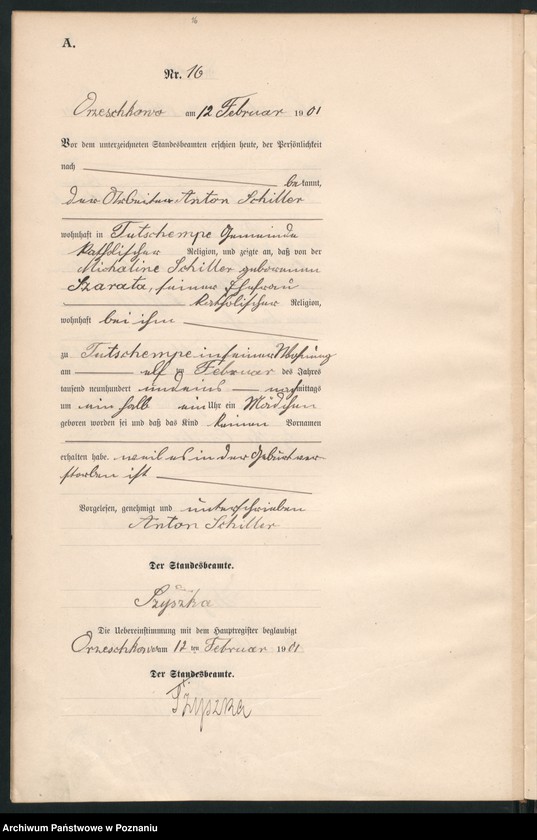 16
A.
Nr. 16
Orzeschkowo am 12 Februar 1901
Vor dem unterzeichneten Standesbeamten erschien heute, der Persönlichkeit
nach
bekannt,
der Arbeiter Anton Schiller
wohnhaft in Tutschempe Gemeinde
katholischer Religion, und zeigte an, daß von der
Michaline Schiller geborenen
Szarata, seiner Ehefrau
katholischer Religion,
wohnhaft bei ihm
zu Tutschempe in seiner Wohnung
am elf ten Februar des Jahres
tausend neunhundert und eins nachmittags
um ein halb ein Uhr ein Mädchen
geboren worden sei und daß das Kind keinen Vornamen
erhalten habe. weil es in der Geburt ver-
storben ist
Vorgelesen, genehmigt und unterschrieben
Anton Schiller
Der Standesbeamte.
Szyszka
Die Uebereinstimmung mit dem Hauptregister beglaubigt
Orzeschkowo am 12 ten Februar 1901
Der Standesbeamte.
Szyszka
Archiwum Państwowe w Poznaniu